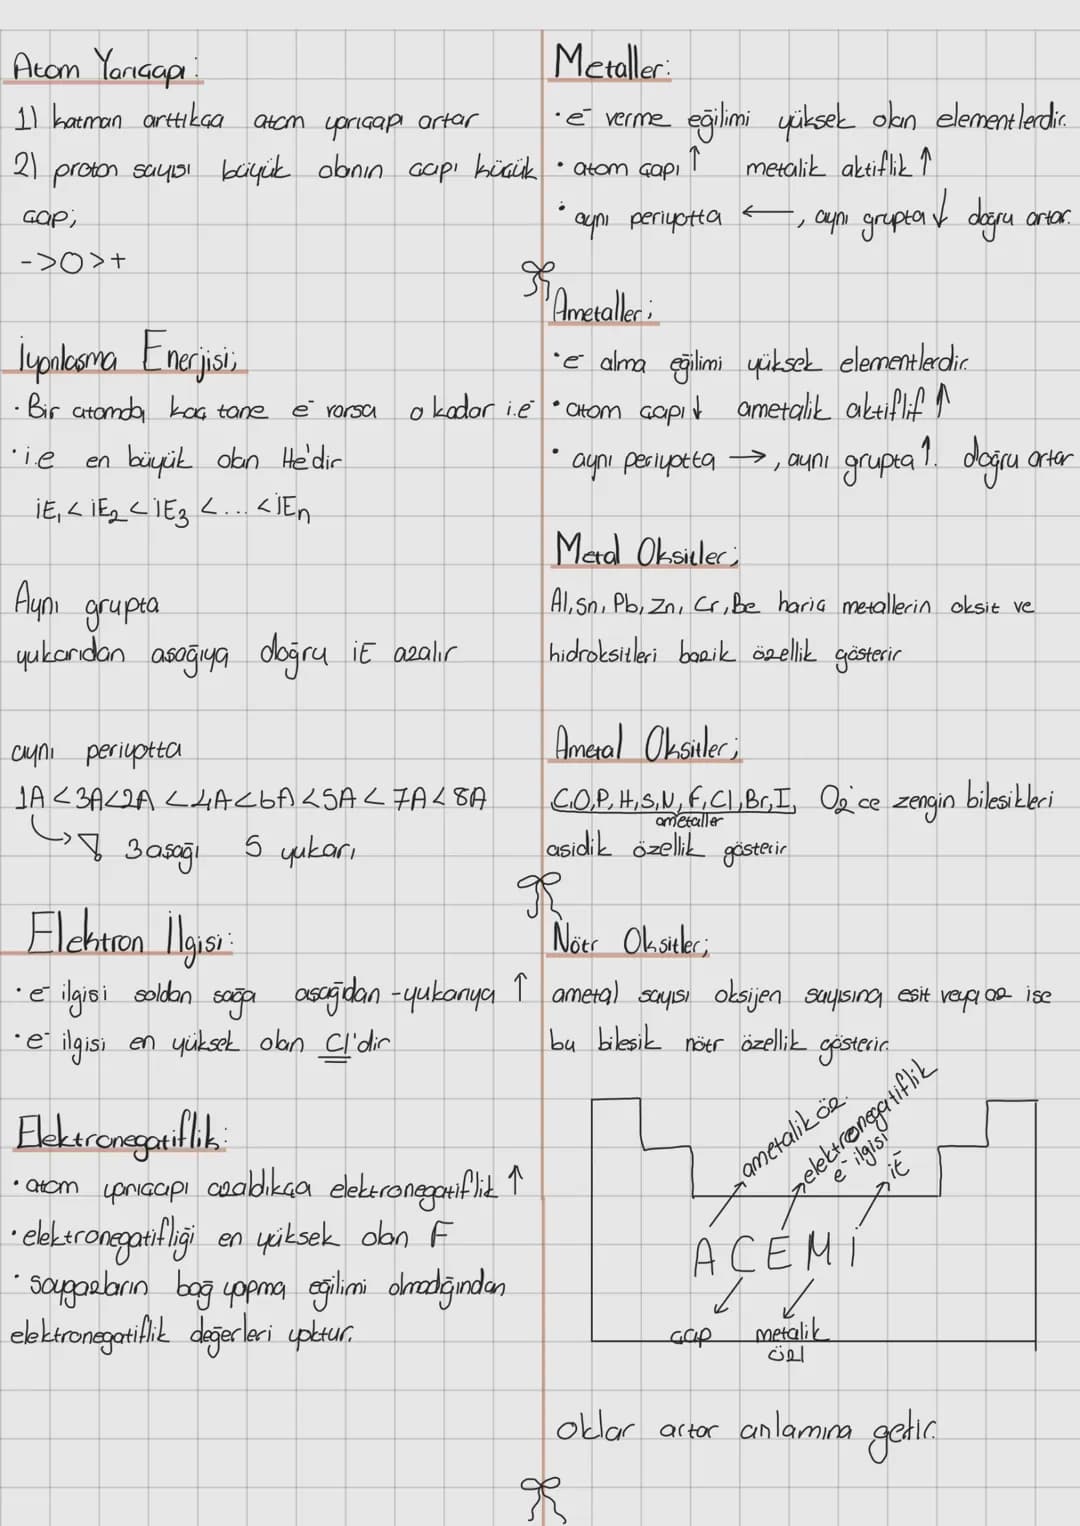 Atom Yarıçapı:
1) katman arttıkça atom yarıçapı artar
2) proton sayısı büyük olanın çapı küçük
çap;
- > O > +
İyonlaşma Enerjisi;
· Bir atomda kaç tane e⁻ varsa o kadar i.e
· i.e en büyük olan He'dir
İE₁ < İE₂ < İE₃ < ... < İEn
Aynı grupta
yukarıdan aşağıya doğru iE azalır
aynı periyotta
1A < 3A < 2A < 4A < 6A < 5A < 7A < 8A
3 aşağı 5 yukarı
Elektron İlgisi:
· e⁻ ilgisi soldan sağa aşağıdan - yukarıya ↑
· e⁻ ilgisi en yüksek olan Cl'dir
Elektronegatiflik:
· atom yarıçapı azaldıkça elektronegatiflik ↑
· elektronegatifliği en yüksek olan F
· soygazların bağ yapma eğilimi olmadığından
elektronegatiflik değerleri yoktur.
Metaller:
· e⁻ verme eğilimi yüksek olan elementlerdir.
· atom çapı ↑ metalik aktiflik ↑
· aynı periyotta ←, aynı grupta ↓ doğru artar.
Ametaller;
· e⁻ alma eğilimi yüksek elementlerdir.
· atom çapı ↓ ametalik aktiflif ↑
· aynı periyotta →, aynı grupta ↑. doğru artar
Metal Oksitler;
Al, Sn, Pb, Zn, Cr, Be hariç metallerin oksit ve
hidroksitleri bazik özellik gösterir
Ametal Oksitler;
C, O, P, H, S, N, F, Cl, Br, I, O₂'ce zengin bileşikleri
ametaller
asidik özellik gösterir
Nötr Oksitler;
ametal sayısı oksijen sayısına eşit veya az ise
bu bileşik nötr özellik gösterir.
ametalik öz.
elektronegatiflik
e⁻ ilgisi
iE
A Ç E M İ
çap
metalik
özl
Oklar artar anlamına gelir.